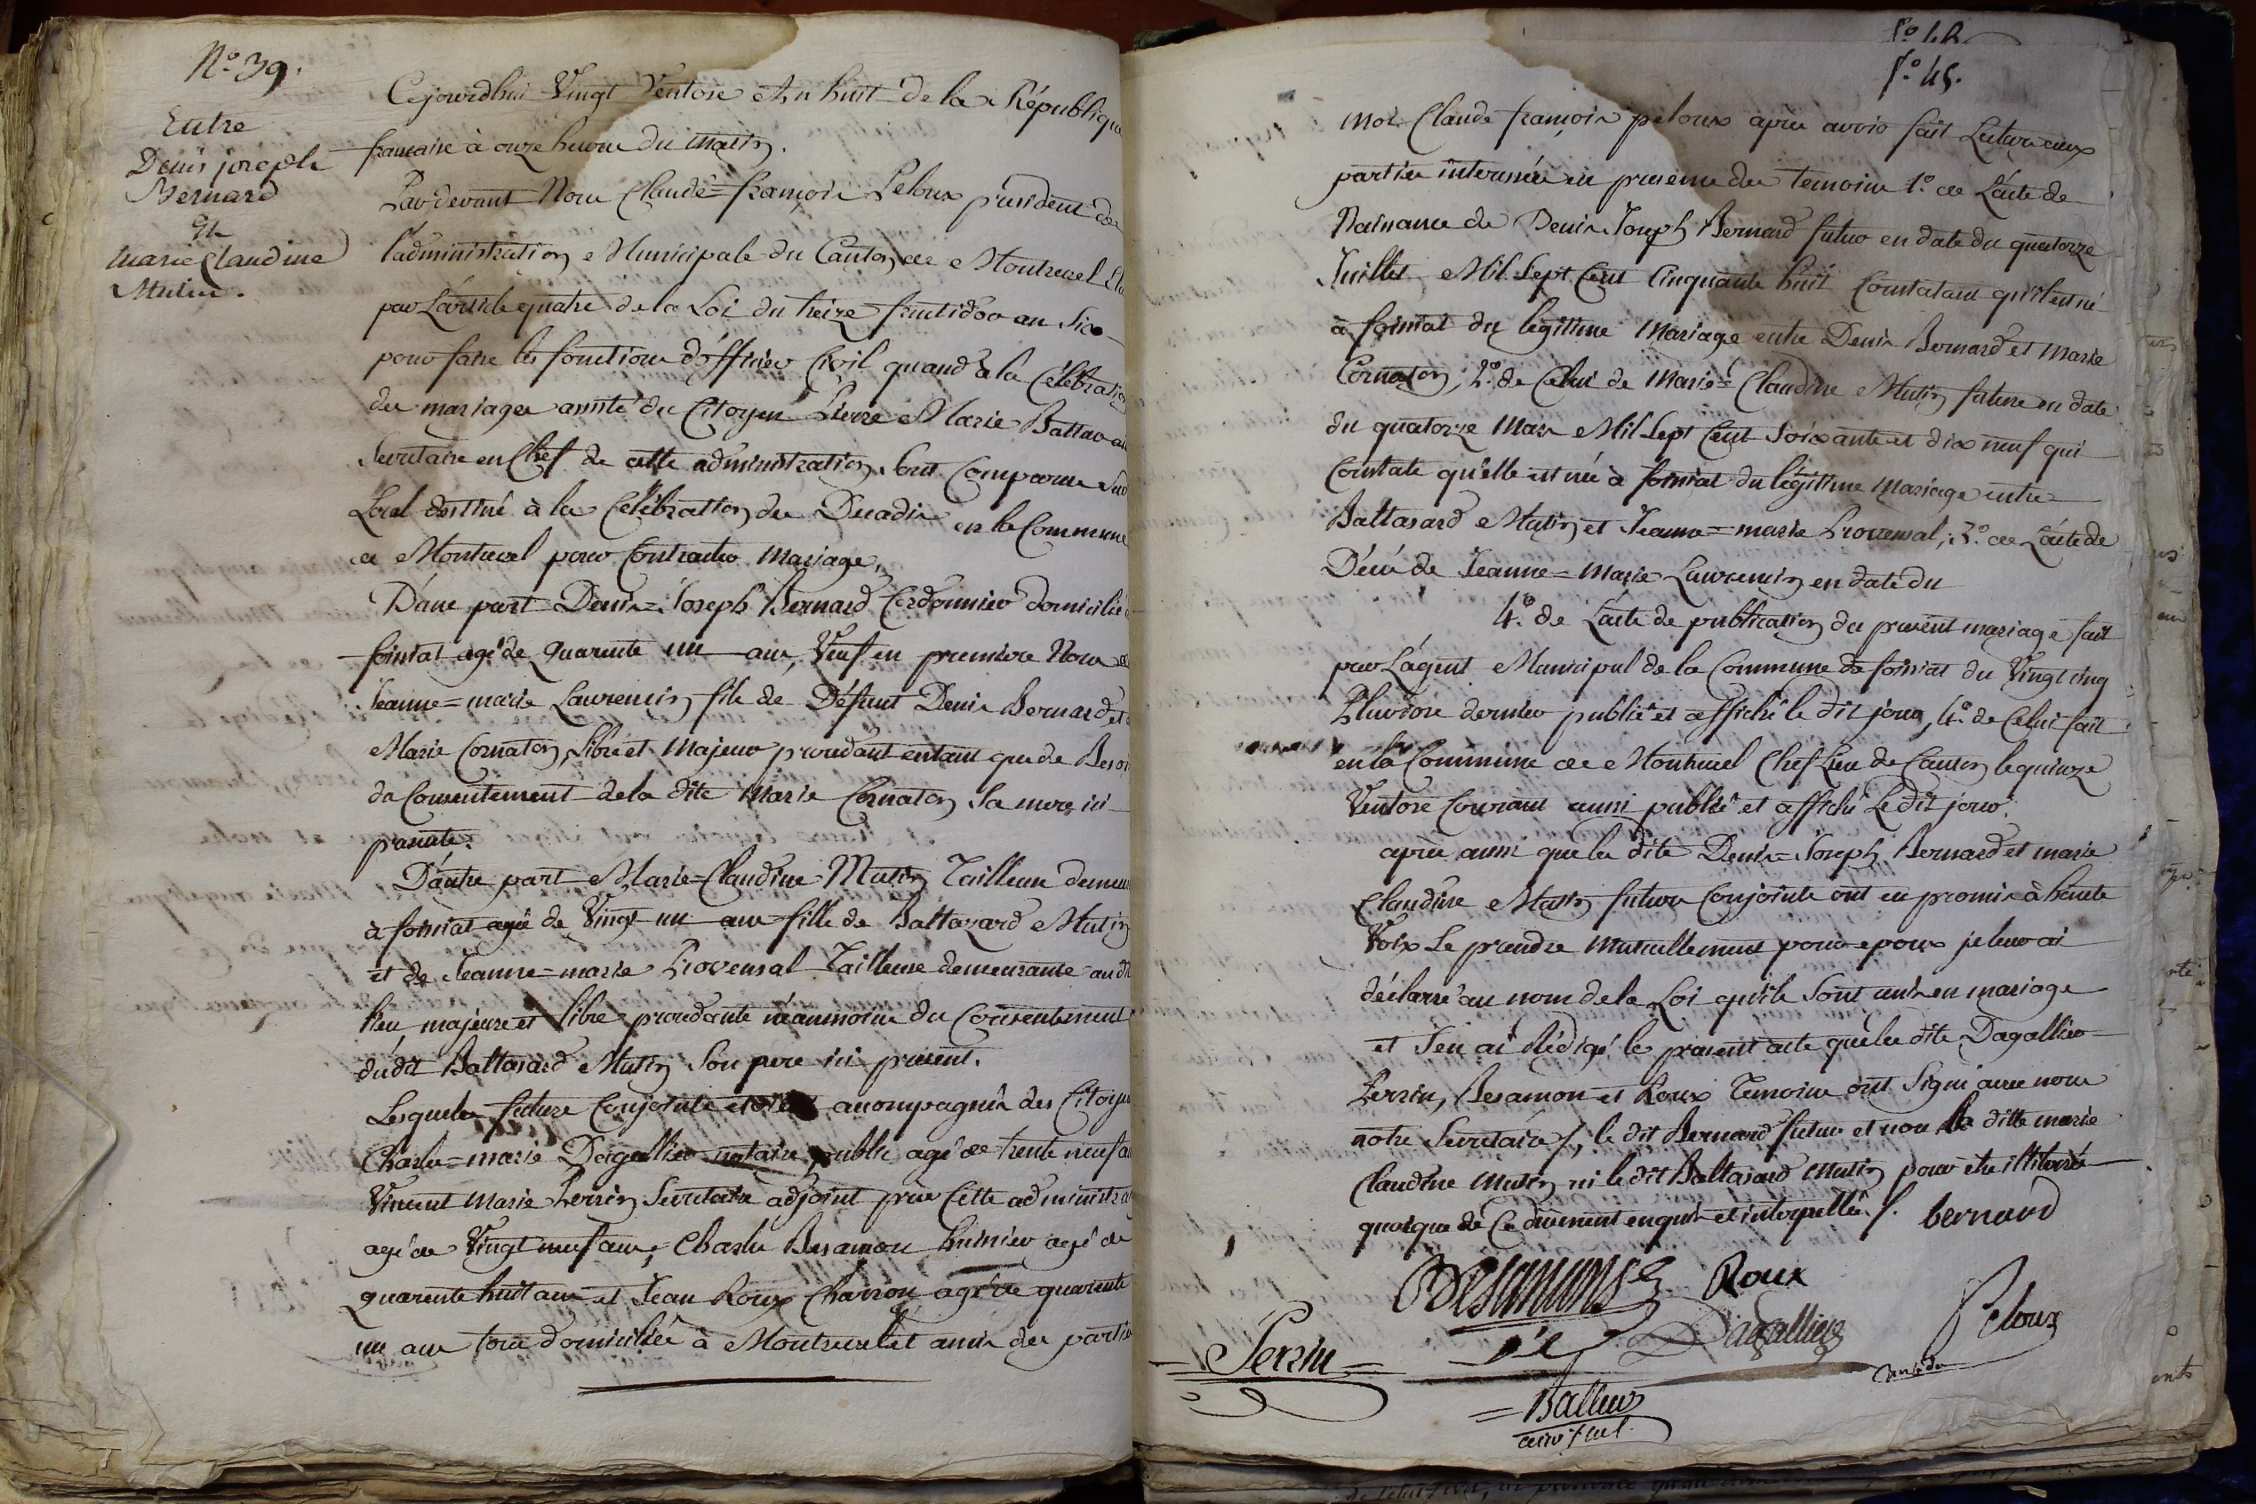 N.o 39.
Entre
Denis joseph
Bernard
Et
Marie Claudine
Mutin.
Cejourdhui Vingt Ventose An huit de la République
francaise à onze heures du Matin.
Pardevant Nous Claude=françois Peloux président de
l'administration Municipale du Canton de Montrevel
par L'article quatre de la Loi du treize fructidor an Six
pour faire les fonctions d'officier Civil quand à la Célébration
des mariages assisté du Citoyen Pierre Marie
Secretaire en Chef de cette administration, Sont Comparus Sur
Local destiné à la Célébration des Decadis en la Commune
de Montrevel pour Contracter Mariage,
D'une part Denis=Joseph Bernard Cordonnier domicilié
foissiat agé de quarante un ans, Veuf en premiere Noces de
Jeanne=marie Laurencin fils de Défunt Denis Bernard et
Marie Cornaton, Libre et Majeur procedant entant que de Besoin
du Consentement de la dite Marie Cornaton Sa mere ici
presente.
D'autre part Marie=Claudine Mutin Tailleuse
à foissiat agée de Vingt un ans fille de Baltazard Mutin
et de Jeanne=marie Provensal Tailleuse demeurante au dt
lieu majeure et libre procedante néanmoins du Consentement
dudt Baltasard Mutin Son pere ici present.
Lesquels futurs Conjoints acompagnés des Citoyens
Charles=marie Dagallier notaire public agé de trente neuf ans
Vincent Marie Perrin Secretaire adjoint près Cette administration
agé de Vingt neuf ans, Charles Besamon huissier agé de
quarante huit ans et Jean Roux Charron agé de quarante
un ans tous domiciliés à Montrevel et amis des parties
f.o 45.
Moi Claude françois peloux après avoir fait Lecture aux
parties interessées en presence des temoins 1.o de L'acte de
Naissance de Denis Joseph Bernard futur en date du quatorze
Juillet Mil Sept Cent Cinquante huit Constatant qu'il est né
à foissiat du legitime Mariage entre Denis Bernard et Marie
Cornaton, 2.o de Celui de Marie=Claudine Mutin future en date
du quatorze Mars Mil Sept Cent Soixante et dix neuf qui
Constate qu'elle est née à foissiat du légitime Mariage entre
Baltasard Mutin et Jeanne=marie Provensal, 3.o de L'acte de
Décès de Jeanne=Marie Laurencin en date du
4.o de L'acte de publication du present mariage fait
par L'agent Municipal de la Commune de foissiat du Vingt cinq
Pluviose dernier publié et affiché le dit jour, 4.o de Celui fait
en la Commune de Montrevel Chef Lieu de Canton le quinze
Ventose Courant aussi publié et affiché Le dit jour.
après aussi que les dits Denis=Joseph Bernard et marie
Claudine Mutin futurs Conjoints ont eu promis à haute
Voix Se prendre Mutuellement pour epoux je leur ai
déclarré au nom de la Loi qu'ils Sont unis en mariage
et J'en ai Rédigé le present acte que les dits Dagallier
Perrin, Besamon et Roux Temoins ont Signé avec nous
notre Secretaire /, le dit Bernard futur et non la ditte marie
Claudine Mutin ni le dit Baltasard Mutin pour être illiterés
quoique de Ce duement enquis et interpellés /. bernard
Besamons Roux
Perrin Dagallier Peloux